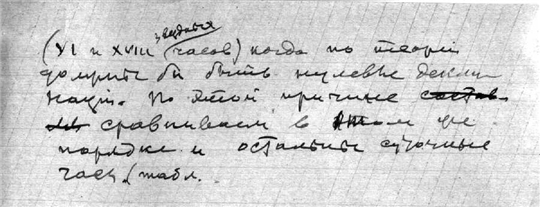 звездных
(VI и XVIII часов) когда по теории
должны бы быть нулевые декли
нации. По этой причине состав-
ля сравниваем в том же
порядке и остальные суточные
часы (табл.